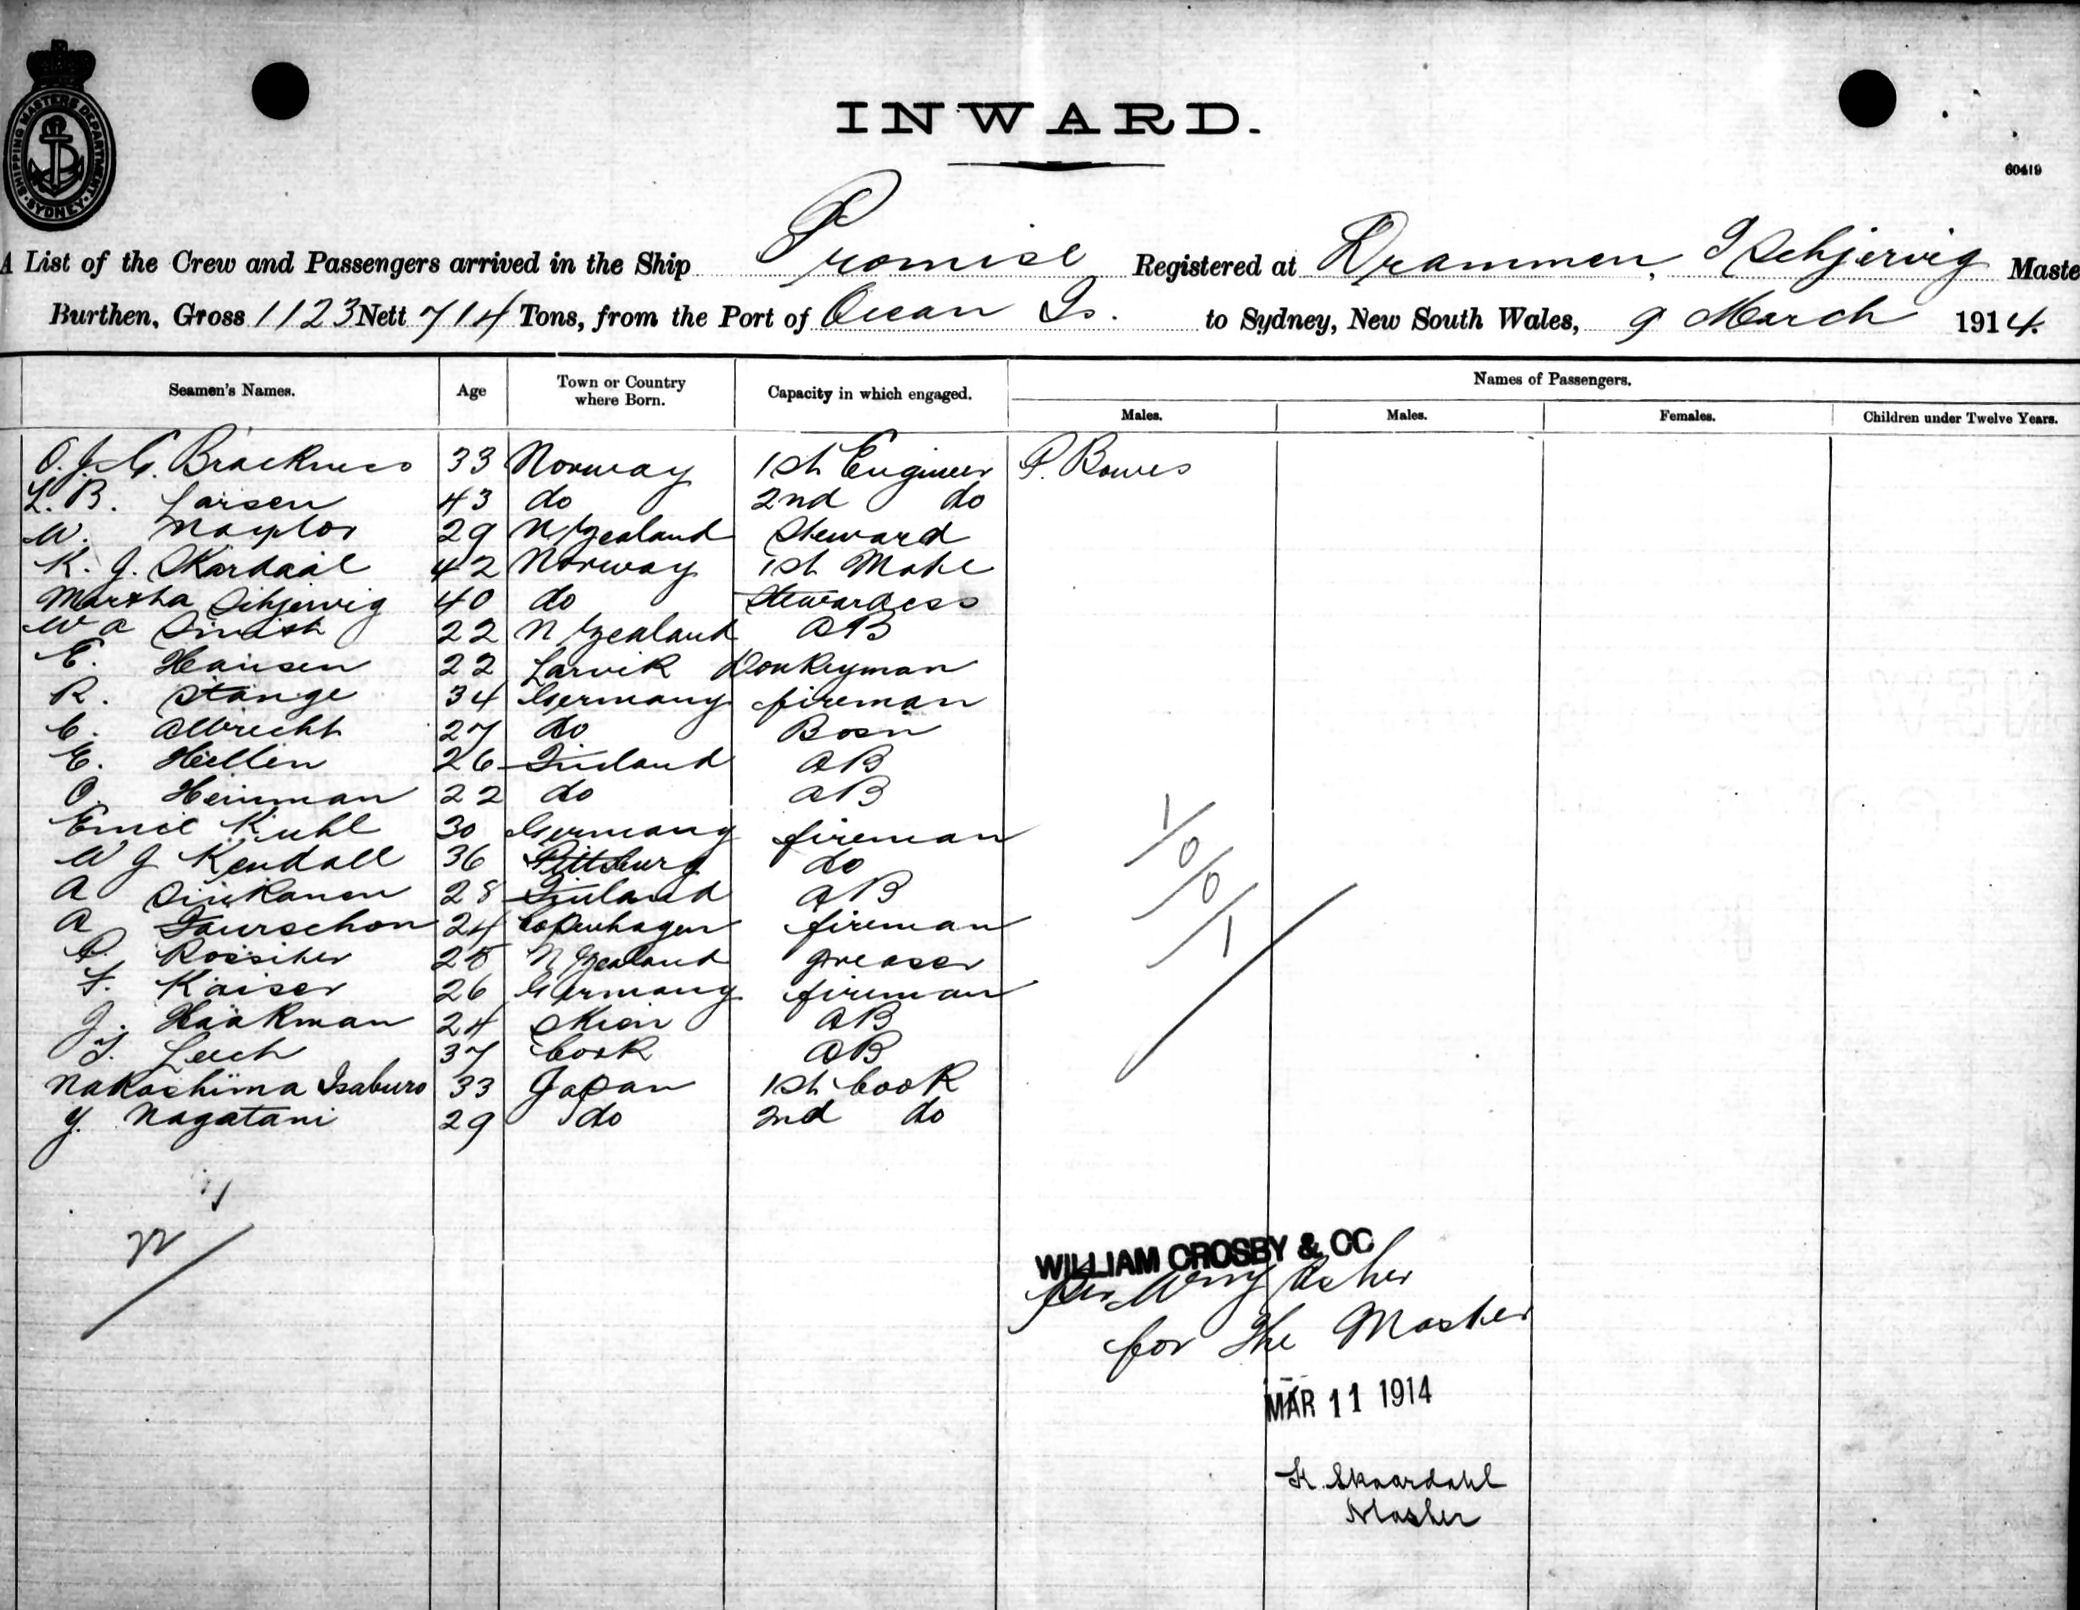 SHIPPING MASTERS DEPARTMENT
SYDNEY
INWARD.
60419
A List of the Crew and Passengers arrived in the Ship Promise Registered at Drammen, I Schjervig Maste
Burthen, Gross 1123 Nett 714 Tons, from the Port of Ocean Is. to Sydney, New South Wales, 9 March 1914.
Seamen's Names. Age Town or Country where Born. Capacity in which engaged. Names of Passengers.
Males. Males. Females. Children under Twelve Years.
O. J. G. Brackness 33 Norway 1st Engineer P. Bowes
L. B. Larsen 43 do 2nd do
W. Naylor 29 N Zealand Steward
K. J. Skardaal 42 Norway 1st Mate
Martha Schjervig 40 do Stewardess
W a Smith 22 N Zealand AB
E. Hansen 22 Larvik Donkeyman
R. Stange 34 Germany fireman
C. Albrecht 27 do Bosn
E. Hellen 26 Finland AB
O. Heinman 22 do AB
Emil Kuhl 30 Germany fireman
W J Kendall 36 Pittsburg do
A Sinkanen 28 Finland AB
A Faurschon 24 Copenhagen fireman
P. Rossiter 28 N Zealand greaser
F. Kaiser 26 Germany fireman
J. Haakman 24 Skien AB
T. Leech 37 Cork AB
Nakashima Isaburo 33 Japan 1st Cook
Y. Nagatani 29 do 2nd do
1/0/0/1
22
WILLIAM CROSBY & CO
Per Asher
for The Master
MAR 11 1914
K. Skaardahl
Master